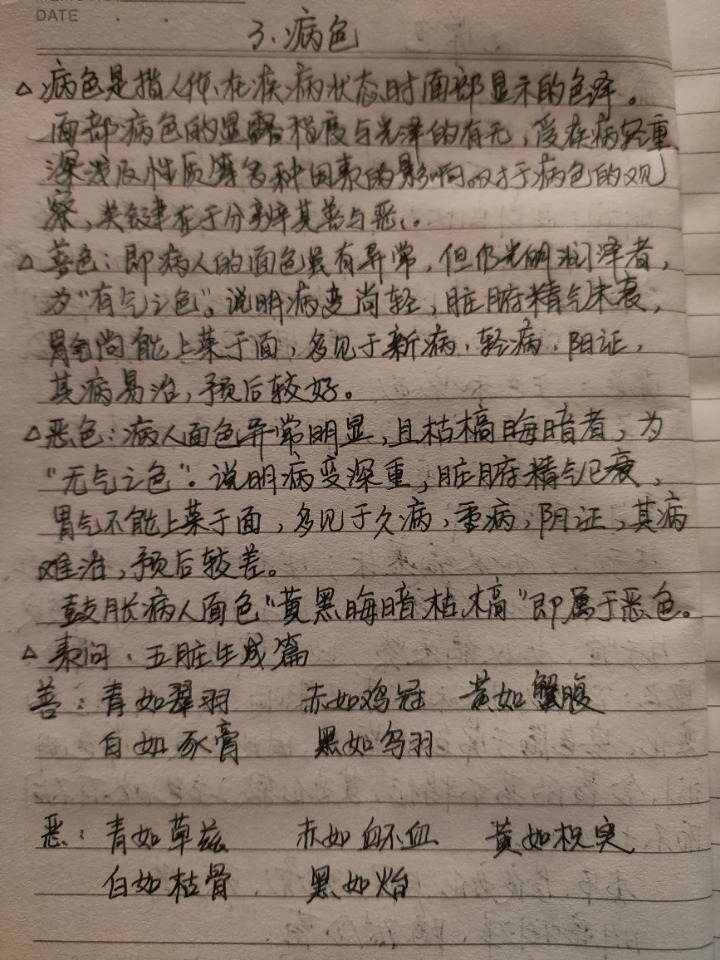 DATE
3、病色
△病色是指人体在疾病状态时面部显示的色泽。
面部病色的显露程度与光泽的有无,受疾病轻重、
深浅及性质等多种因素的影响。对于病色的观
察,关键在于分辨其善与恶。
△善色:即病人的面色虽有异常,但仍光明润泽者,
为“有气之色”。说明病变尚轻,脏腑精气未衰,
胃气尚能上荣于面,多见于新病、轻病、阳证,
其病易治,预后较好。
△恶色:病人面色异常明显,且枯槁晦暗者,为
“无气之色”。说明病变深重,脏腑精气已衰,
胃气不能上荣于面,多见于久病,重病,阴证,其病
难治,预后较差。
鼓胀病人面色“黄黑晦暗枯槁”即属于恶色。
△素问·五脏生成篇
善:青如翠羽 赤如鸡冠 黄如蟹腹
白如豕膏 黑如乌羽
恶:青如草兹 赤如衃血 黄如枳实
白如枯骨 黑如炲